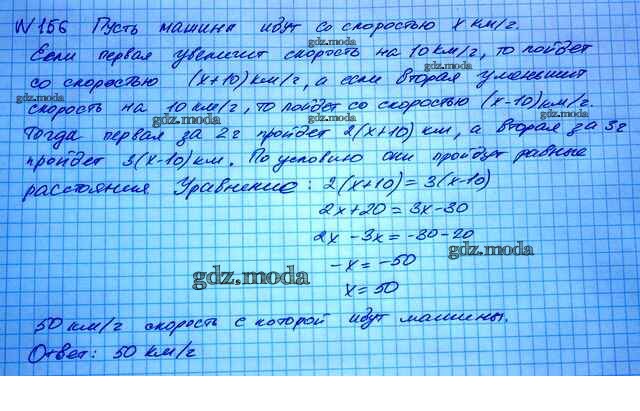 N 156 Пусть машины идут со скоростью x км/г.
gdz.moda
Если первая увеличит скорость на 10 км/г, то пойдет
gdz.moda
со скоростью (x+10) км/г, а если вторая уменьшит
gdz.moda
скорость на 10 км/г, то пойдет со скоростью (x-10) км/г.
gdz.moda gdz.moda
Тогда первая за 2г пройдет 2(x+10) км, а вторая за 3г
пройдет 3(x-10) км. По условию они пройдут равные
gdz.moda
расстояния Уравнение: 2(x+10) = 3(x-10)
2x+20 = 3x-30
2x -3x = -30-20
gdz.moda
-x = -50
gdz.moda
x = 50
50 км/г скорость с которой идут машины.
Ответ: 50 км/г